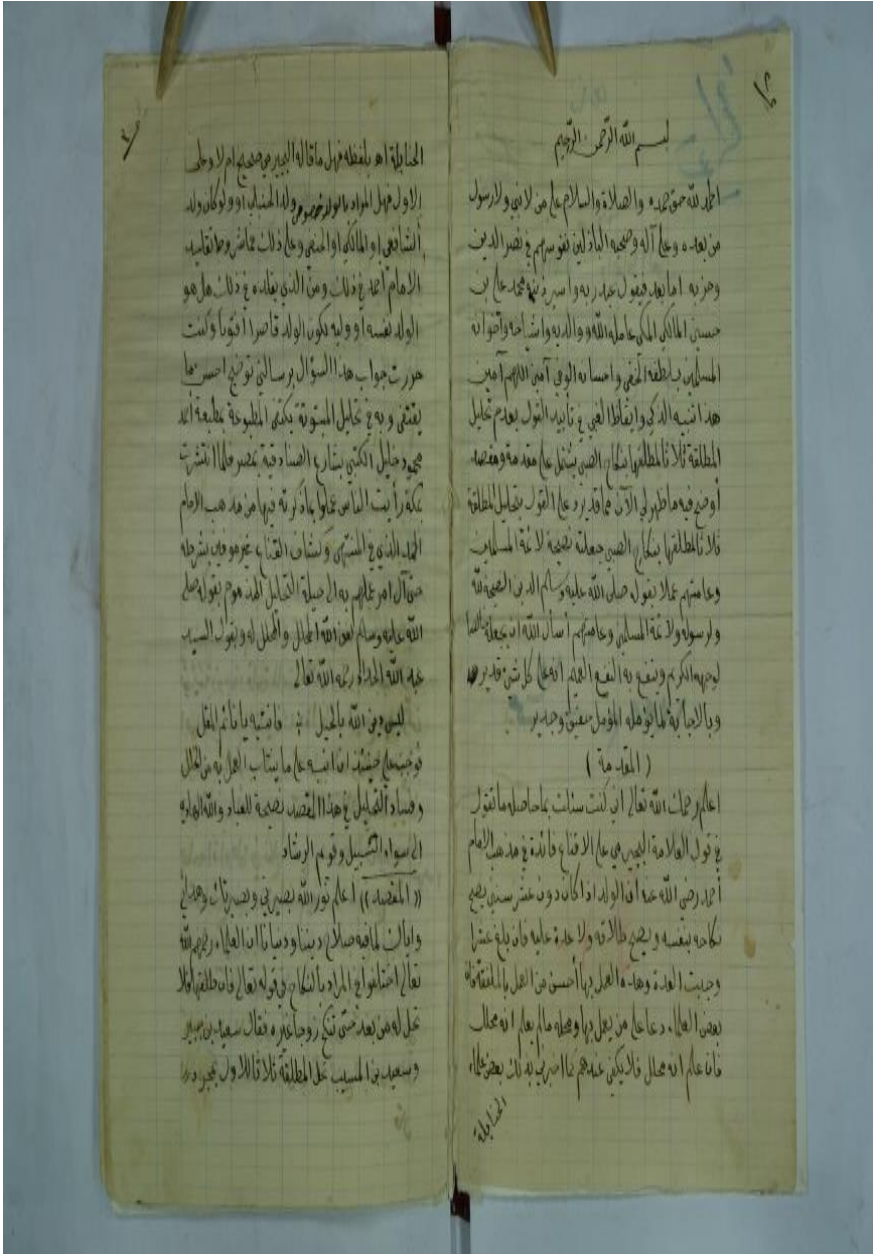 بسم الله الرحمن الرحيم
الحمد لله حق حمده والصلاة والسلام على من لا نبي ولا رسول
من بعده وعلى آله وصحبه الباذلين نفوسهم في نصر الدين
وحزبه اما بعد فيقول عبد ربه واسير ذنبه محمد علي بن
حسين المالكي المكي عامله الله ووالديه واشياخه واخوانه
المسلمين بلطفه الخفي واحسانه الوفي آمين اللهم آمين
هذا تنبيه الذكي وايقاظ الغبي في تأييد القول بعدم تحليل
المطلقة ثلاثا لمطلقها بنكاح الصبي يشتمل على مقدمة ومقصد
أوضح فيه ما ظهر لي الآن مما قد يرد على القول بتحليل المطلقة
ثلاثا لمطلقها بنكاح الصبي جعلته نصيحة لائمة المسلمين
وعامتهم عملا بقوله صلى الله عليه وسلم الدين النصيحة لله
ولرسوله ولائمة المسلمين وعامتهم أسأل الله ان يجعله
لوجهه الكريم وينفع به النفع العميم انه على كل شئ قدير
وبالاجابة لما يؤمله المؤمل حقيق وجدير
( المقدمة )
اعلم رحمك الله تعالى اني كنت سئلت بما حاصله ما تقول
في قول العلامة البجيرمي على الاقناع فائدة في مذهب الامام
أحمد رضي الله عنه أن الولد اذا كان دون عشر سنين يصح
نكاحه بنفسه ويصح طلاقه ولا عدة عليه فان بلغ عشرا
وجبت العدة وهذه العمل بها أحسن من العمل بالملفقة فان
بعض العلماء دعا على من يعمل بها ومحله ما لم يعلم انه محلل
فان علم انه محلل فلا يكفي عندهم كما اخبرني بذلك بعض علماء
الحنابلة
الحنابلة اهـ بلفظه فهل ما قاله البجيرمي صحيح ام لا وعلى
الاول فهل المراد بالولد خصوص ولد الحنبلي او ولو كان ولد
الشافعي او المالكي او الحنفي وعلى ذلك فما شروط تقليد
الامام أحمد في ذلك ومن الذي يقلده في ذلك هل هو
الولد نفسه او وليه لكون الولد قاصرا أفتونا وكنت
حررت جواب هذا السؤال برسالتي توضيح احسن ما
يقتفى وبه في تحليل المبتوتة يكتفى المطبوعة بمطبعة أحمد
محمود خليل الكتبي بشارع الصنادقية بمصر فلما انتشرت
بمكة رأيت الناس عملوا بما ذكرته فيها من مذهب الامام
احمد الذي في المنتهى وكشاف القناع غير موفين بشرطه
حتى آل امر عملهم به الى حيلة التحليل المذموم بقوله صلى
الله عليه وسلم لعن الله المحلل والمحلل له وبقول السيد
عبد الله الحداد رحمه الله تعالى
ليس دين الله بالحيل فانتبه يا نائم المقل
فوجب علي حينئذ ان انبه على ما ينتاب العمل به من الخلل
وفساد التحليل في هذا المقصد نصيحة للعباد والله الهادي
الى سواء السبيل وقويم الرشاد
(( المقصد )) اعلم نور الله بصيرتي وبصيرتك وهداني
واياك لما فيه صلاح ديننا ودنيانا ان العلماء رحمهم الله
تعالى اختلفوا في المراد بالنكاح في قوله تعالى فان طلقها فلا
تحل له من بعد حتى تنكح زوجا غيره فقال سعيد بن جبير
وسعيد بن المسيب تحل المطلقة ثلاثا للاول بمجرد